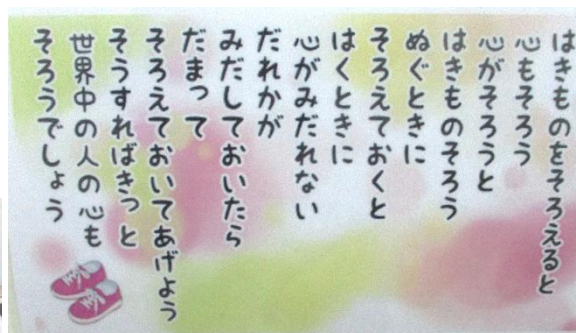 はきものをそろえると
心もそろう
心がそろうと
はきものそろう
ぬぐときに
そろえておくと
はくときに
心がみだれない
だれかが
みだしておいたら
だまって
そろえておいてあげよう
そうすればきっと
世界中の人の心も
そろうでしょう